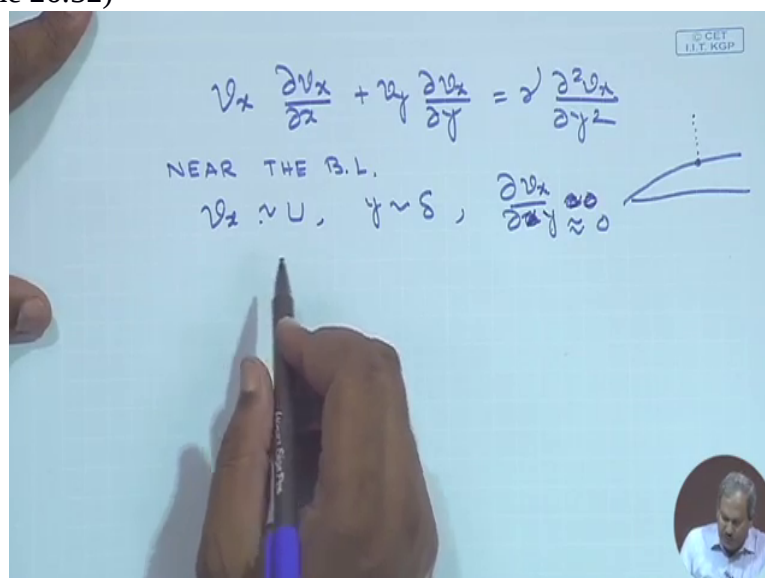 © CET
I.I.T. KGP
𝜗x ∂𝜗x/∂x + 𝜗y ∂𝜗x/∂y = ν ∂²𝜗x/∂y²
NEAR THE B.L.
𝜗x ~ U, y ~ δ, ∂𝜗x/∂y ≈ 0